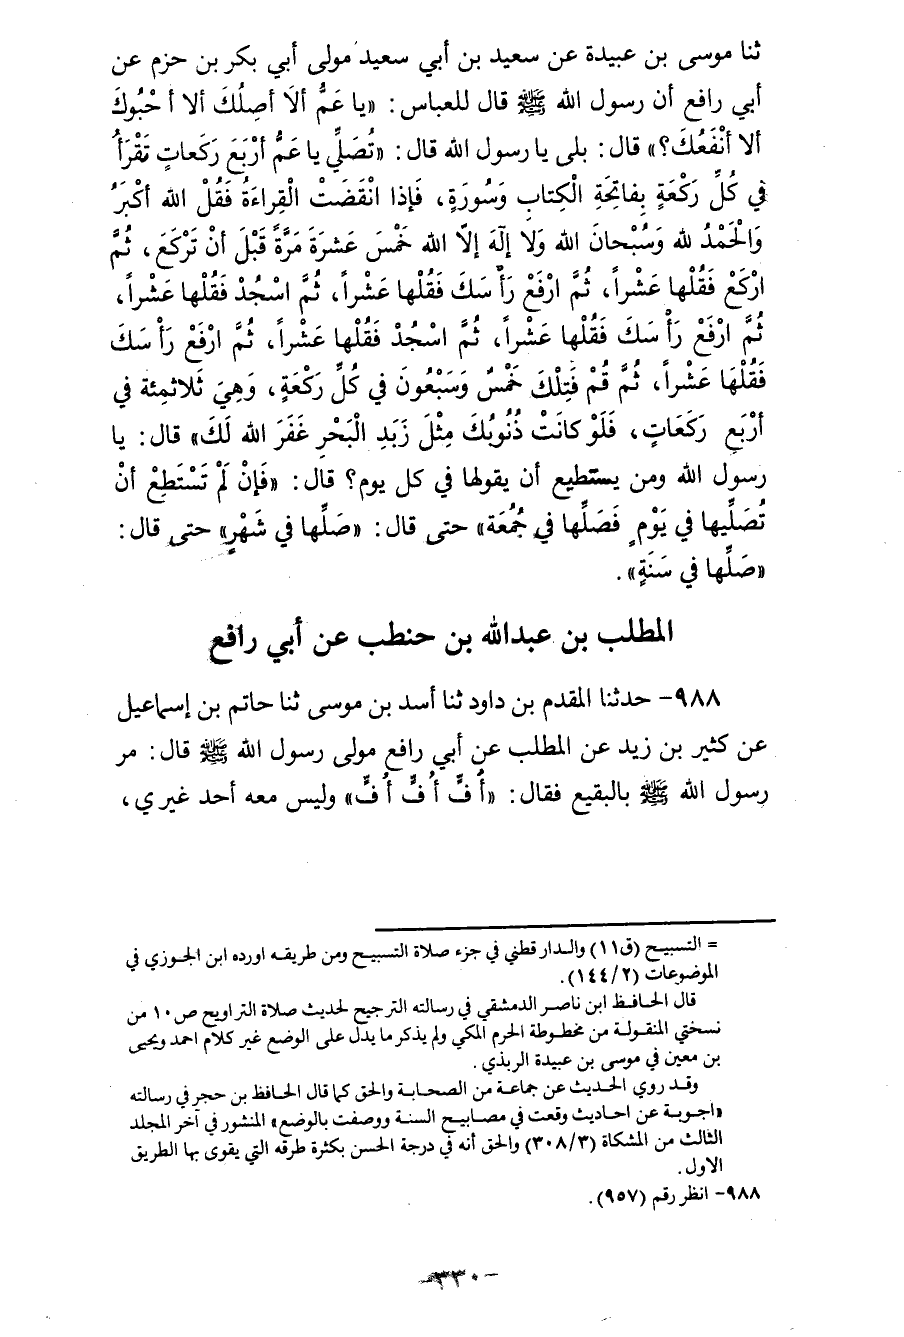 ثنا موسى بن عبيدة عن سعيد بن أبي سعيد مولى أبي بكر بن حزم عن
أبي رافع أن رسول الله ﷺ قال للعباس: «يا عَمُّ ألَا أصِلُكَ ألا أحْبُوكَ
ألا أنْفَعُكَ؟» قال: بلى يا رسول الله قال: «تُصَلِّي يا عَمُّ أرْبَعَ رَكَعاتٍ تَقْرَأُ
في كُلِّ رَكْعَةٍ بِفاتِحَةِ الْكِتابِ وَسُورَةٍ، فَإذا انْقَضَتْ الْقِراءَةُ فَقُلْ الله أكْبَرُ
وَالْحَمْدُ لله وَسُبْحانَ الله وَلا إلَهَ إلّا الله خَمْسَ عَشرَةَ مَرَّةً قَبْلَ أنْ تَرْكَعَ، ثُمَّ
ارْكَعْ فَقُلْها عَشْراً، ثُمَّ ارْفَعْ رَأْسَكَ فَقُلْها عَشْراً، ثُمَّ اسْجُدْ فَقُلْها عَشْراً،
ثُمَّ ارْفَعْ رَأْسَكَ فَقُلْها عَشْراً، ثُمَّ اسْجُدْ فَقُلْها عَشْراً، ثُمَّ ارْفَعْ رَأْسَكَ
فَقُلْهَا عَشْراً، ثُمَّ قُمْ فَتِلْكَ خَمْسٌ وَسَبْعُونَ في كُلِّ رَكْعَةٍ، وَهِيَ ثَلاثمِئة في
أرْبَعِ رَكَعَاتٍ، فَلَوْ كانَتْ ذُنُوبُكَ مِثْلَ زَبَدِ الْبَحْرِ غَفَرَ الله لَكَ» قال: يا
رسول الله ومن يستطيع أن يقولها في كل يوم؟ قال: «فَإنْ لَمْ تَسْتَطِعْ أنْ
تُصَلِّيها في يَوْمٍ فَصَلِّها في جُمُعَة» حتى قال: «صَلِّها في شَهْرٍ» حتى قال:
«صَلِّها في سَنَةٍ».
المطلب بن عبدالله بن حنطب عن أبي رافع
٩٨٨- حدثنا المقدم بن داود ثنا أسد بن موسى ثنا حاتم بن إسماعيل
عن كثير بن زيد عن المطلب عن أبي رافع مولى رسول الله ﷺ قال: مر
رسول الله ﷺ بالبقيع فقال: «أُفٍّ أُفٍّ أُفٍّ» وليس معه أحد غيري،
= التسبيح (ق١١) والدار قطني في جزء صلاة التسبيح ومن طريقه اورده ابن الجوزي في
الموضوعات (١٤٤/٢).
قال الحافظ ابن ناصر الدمشقي في رسالته الترجيح لحديث صلاة التراويح ص١٠ من
نسختي المنقولة من مخطوطة الحرم المكي ولم يذكر ما يدل على الوضع غير كلام احمد ويحيى
بن معين في موسى بن عبيدة الربذي.
وقد روي الحديث عن جماعة من الصحابة والحق كما قال الحافظ بن حجر في رسالته
«اجوبة عن احاديث وقعت في مصابيح السنة ووصفت بالوضع» المنشور في آخر المجلد
الثالث من المشكاة (٣٠٨/٣) والحق أنه في درجة الحسن بكثرة طرقه التي يقوى بها الطريق
الاول.
٩٨٨- انظر رقم (٩٥٧).
-٣٣٠-